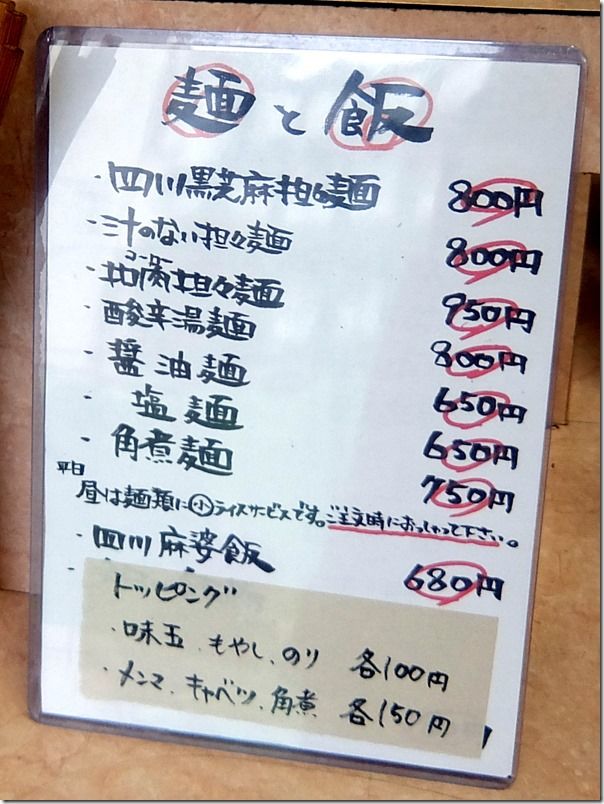 麺と飯
・四川黒芝麻担々麺 800円
・汁のない担々麺 800円
コーロー
・抬肉担々麺 950円
・酸辛湯麺 800円
・醤油麺 650円
・塩麺 650円
・角煮麺 750円
平日
昼は麺類に小ライスサービスです。ご注文時におっしゃって下さい。
・四川麻婆飯 680円
トッピング
・味玉、もやし、のり 各100円
・メンマ、キャベツ、角煮 各150円